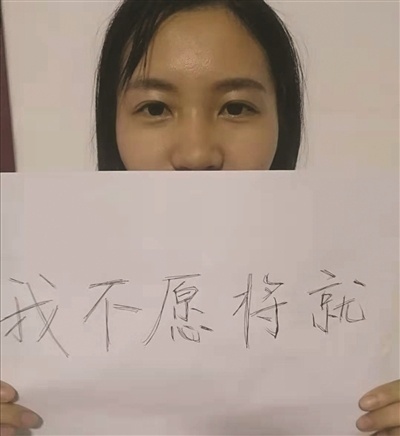 我不愿将就